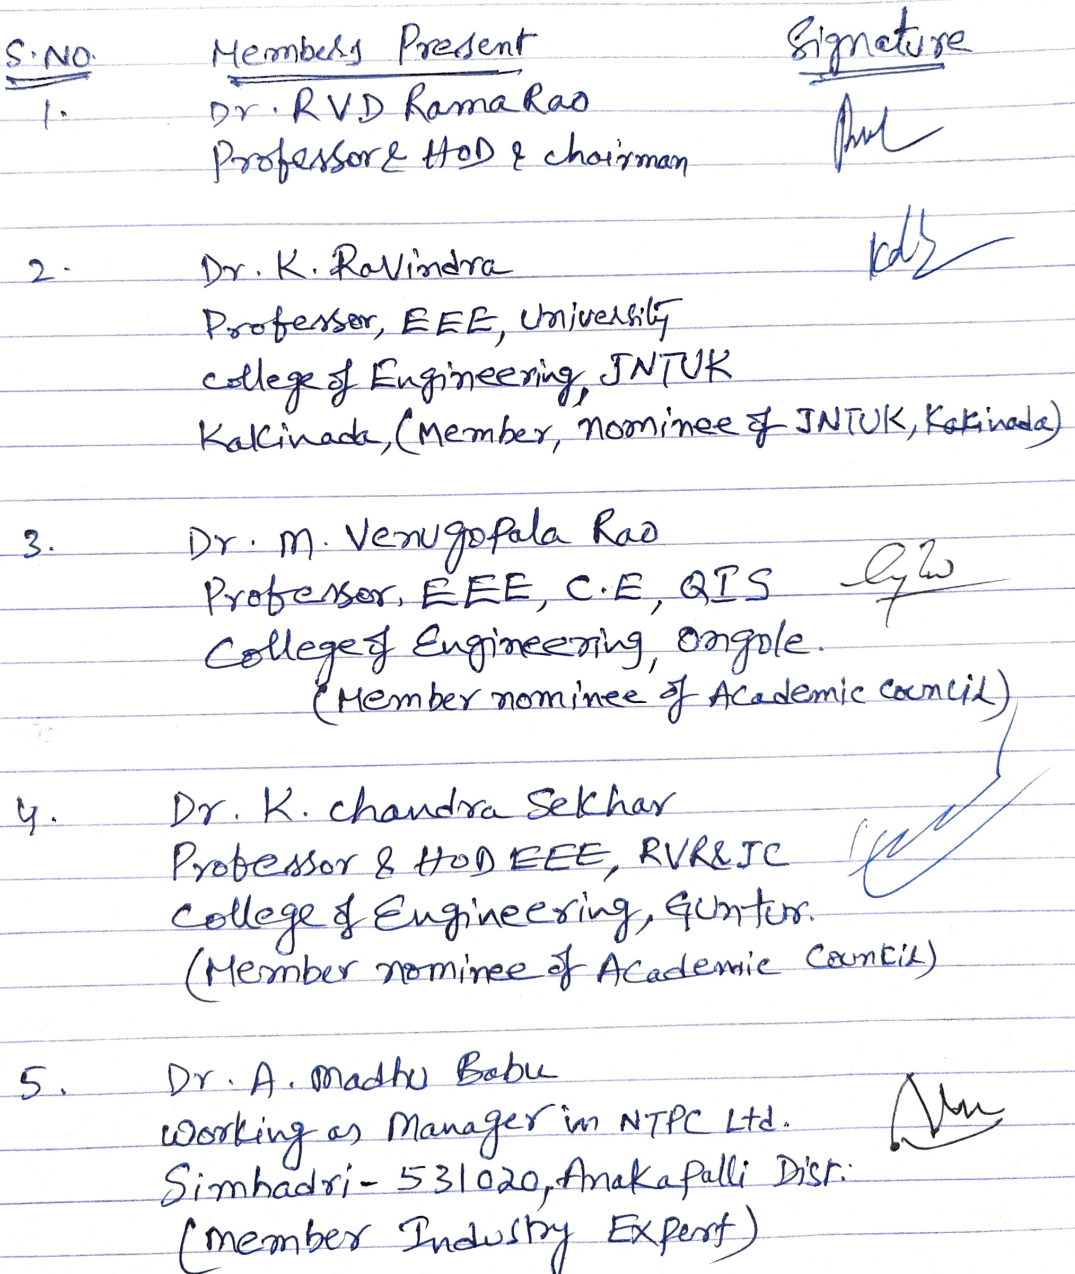 S.NO. Members Present Signature
1. Dr. RVD Rama Rao
Professor & HOD & chairman
2. Dr. K. Ravindra
Professor, EEE, University
college of Engineering, JNTUK
Kakinada, (Member, nominee of JNTUK, Kakinada)
3. Dr. M. Venugopala Rao
Professor, EEE, C.E, QIS
College of Engineering, Ongole.
(Member nominee of Academic Council)
4. Dr. K. chandra Sekhar
Professor & HOD EEE, RVR&JC
College of Engineering, Guntur.
(Member nominee of Academic Council)
5. Dr. A. Madhu Babu
Working as Manager in NTPC Ltd.
Simhadri- 531020, Anakapalli Dist:
(member Industry Expert)